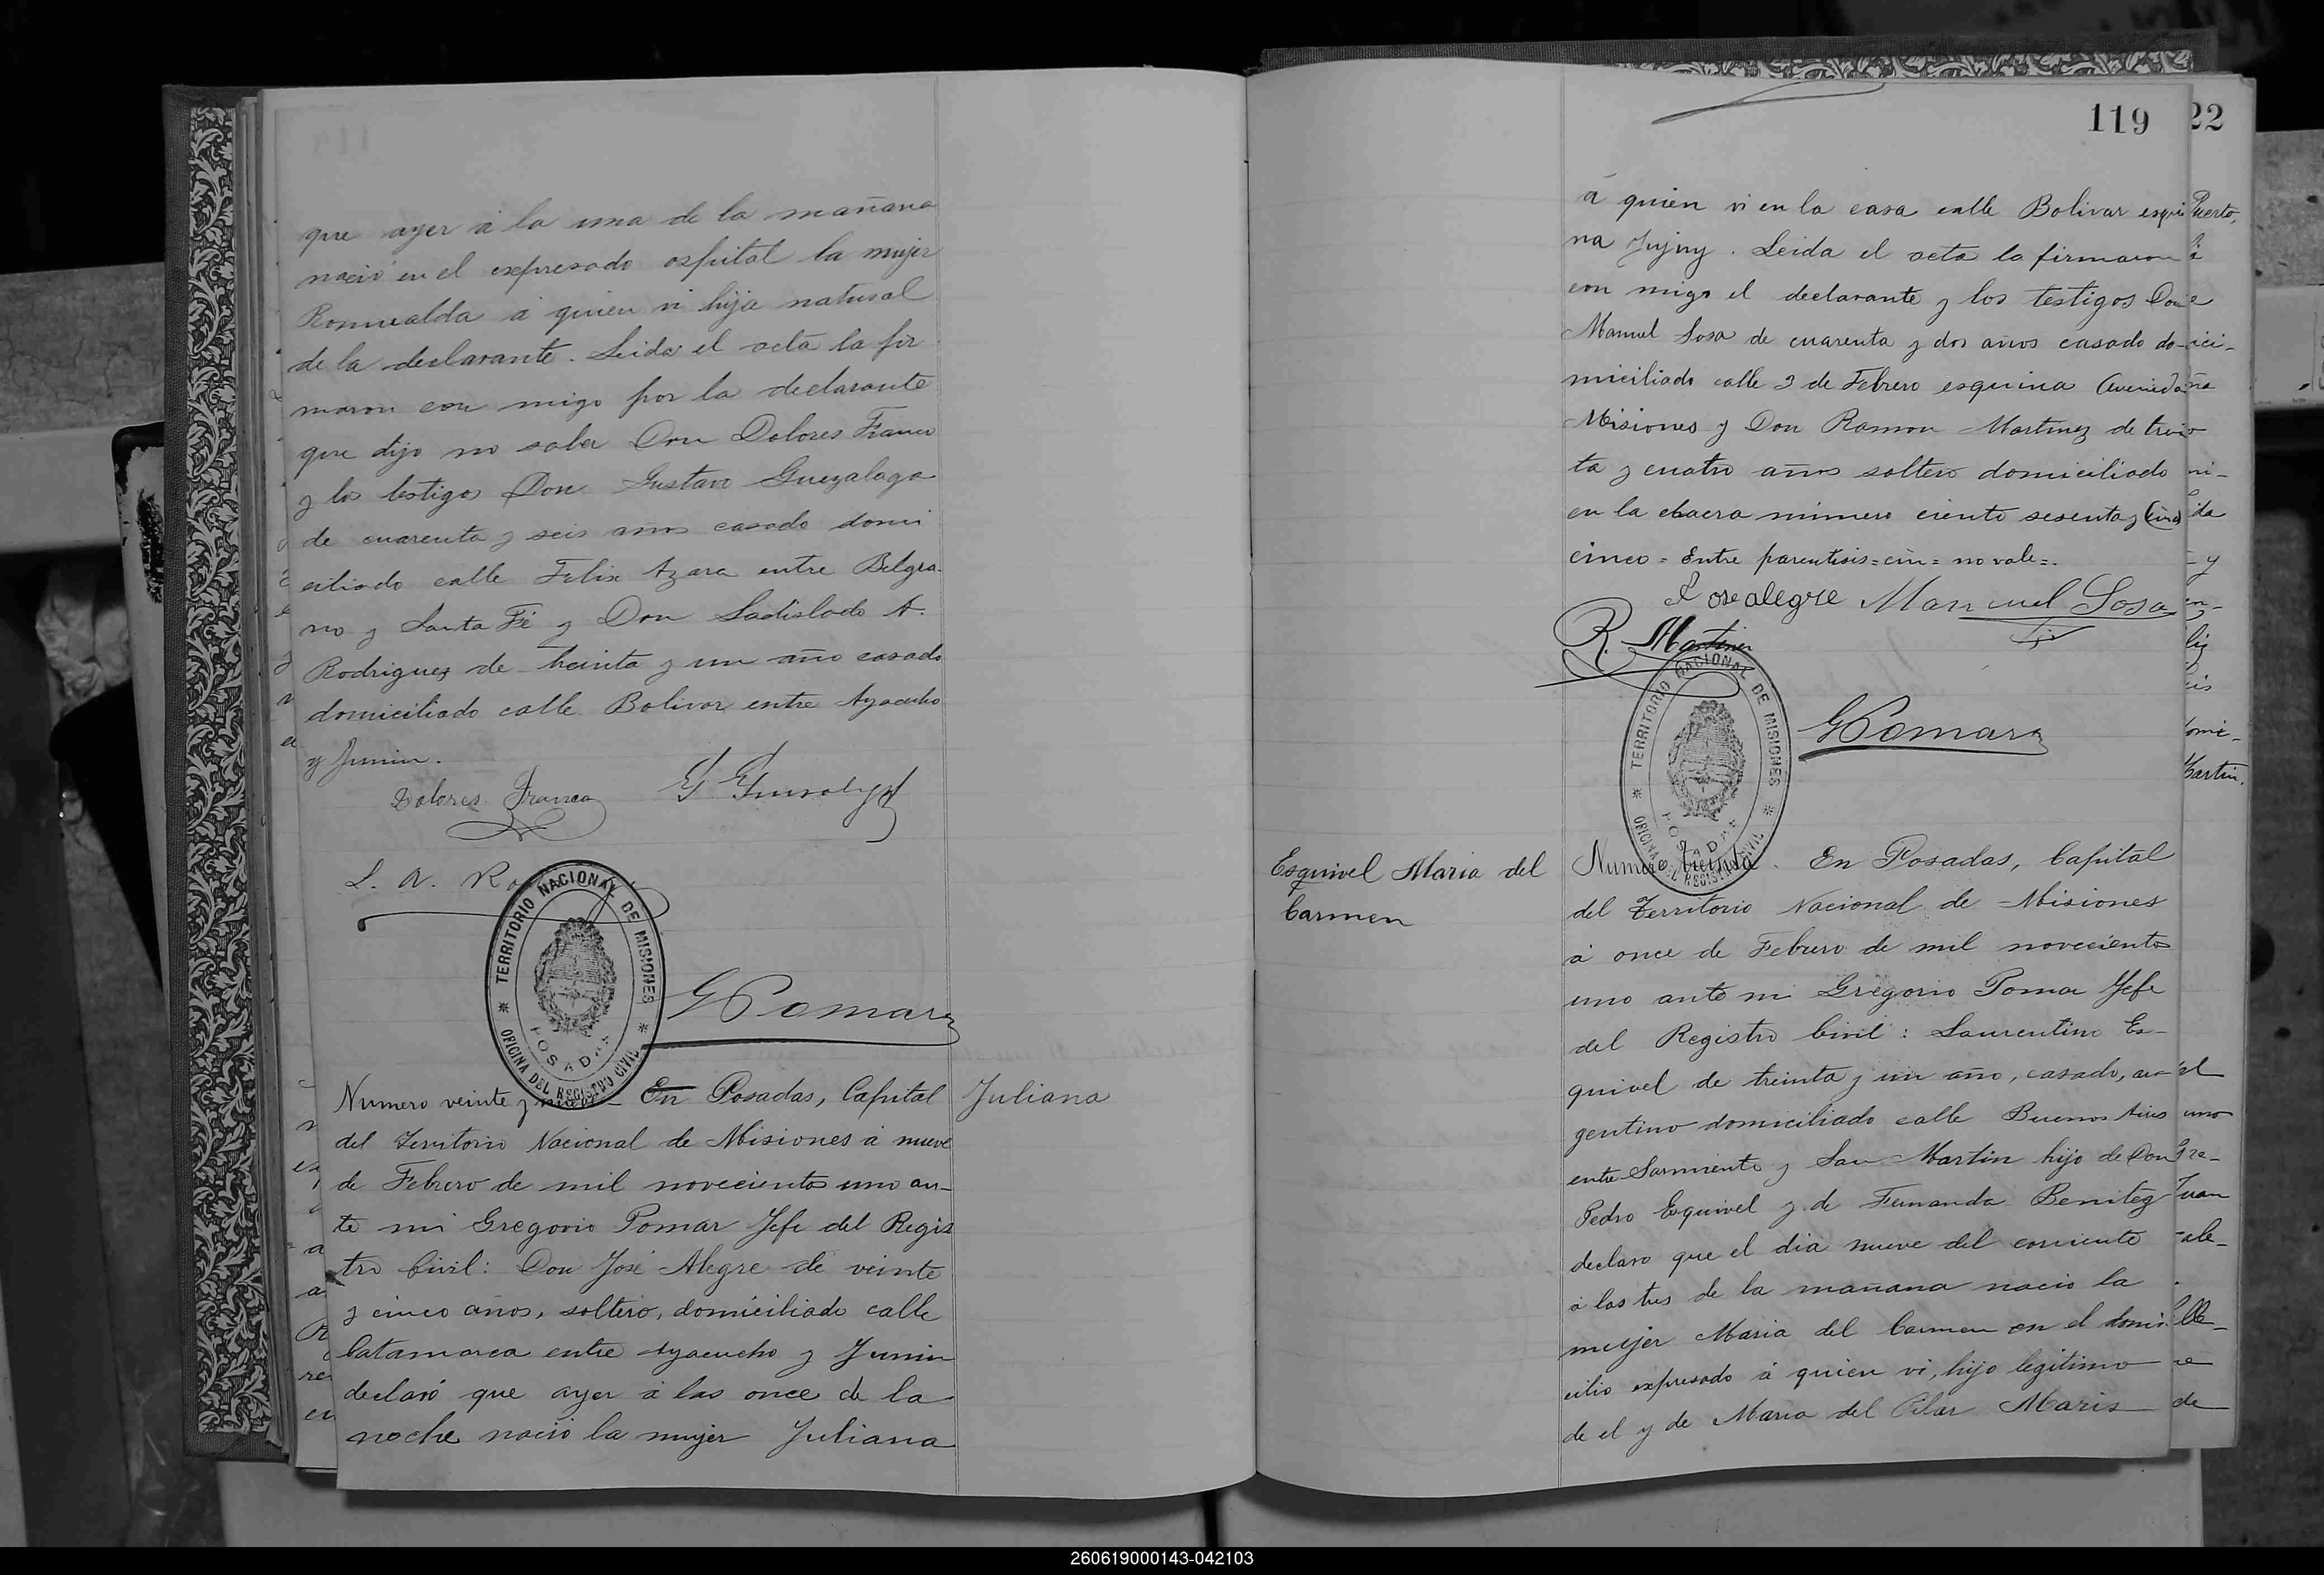 que ayer á la una de la mañana
nacio en el expresado ospital la mujer
Romualda á quien vi hija natural
de la declarante. Leida el acta la fir
maron con migo por la declarante
que dijo no saber Don Dolores Franco
y los testigos Don Gustavo Guezalaga
de cuarenta y seis años casado domi
ciliado calle Felix Azara entre Belgra-
no y Santa Fé y Don Ladislado A.
Rodriguez de treinta y un año casado
domiciliado calle Bolivar entre Ayacucho
y Junin.
Dolores Franco
L. A.
TERRITORIO NACIONAL DE MISIONES
OFICINA DEL REGISTRO CIVIL
POSADAS
G Pomar
Numero veinte y nueve En Posadas, Capital
Juliana
del Territorio Nacional de Misiones á nueve
de Febrero de mil novecientos uno an-
te mi Gregorio Pomar Jefe del Regis
tro Civil: Don José Alegre de veinte
y cinco años, soltero, domiciliado calle
Catamarca entre Ayacucho y Junin
declaró que ayer á las once de la
noche nació la mujer Juliana
119
22
á quien vi en la casa calle Bolivar esqui
na Jujuy. Leida el acta la firmaron
con migo el declarante y los testigos Don
Manuel Sosa de cuarenta y dos años casado do-
miciliado calle 3 de Febrero esquina Avenida
Misiones y Don Ramon Martinez de trein
ta y cuatro años soltero domiciliado
en la chacra numero ciento sesenta y (cin)
cinco = Entre parentisis = cin = no vale =.
Jose alegre Manuel Sosa
R. Martinez
TERRITORIO NACIONAL DE MISIONES
OFICINA DEL REGISTRO CIVIL
POSADAS
G Pomar
Esquivel Maria del
Carmen
Numero treinta. En Posadas, Capital
del Territorio Nacional de Misiones
á once de Febrero de mil novecientos
uno ante mi Gregorio Pomar Jefe
del Registro Civil: Laurentino Es-
quivel de treinta y un año, casado, ar-
gentino domiciliado calle Buenos Aires
entre Sarmiento y San Martin hijo de Don
Pedro Esquivel y de Fernanda Benitez
declaro que el dia nueve del corriente
á las tres de la mañana nacio la
mujer Maria del Carmen en el domi
cilio expresado á quien vi, hijo legitimo
de el y de Maria del Pilar Maris
260619000143-042103